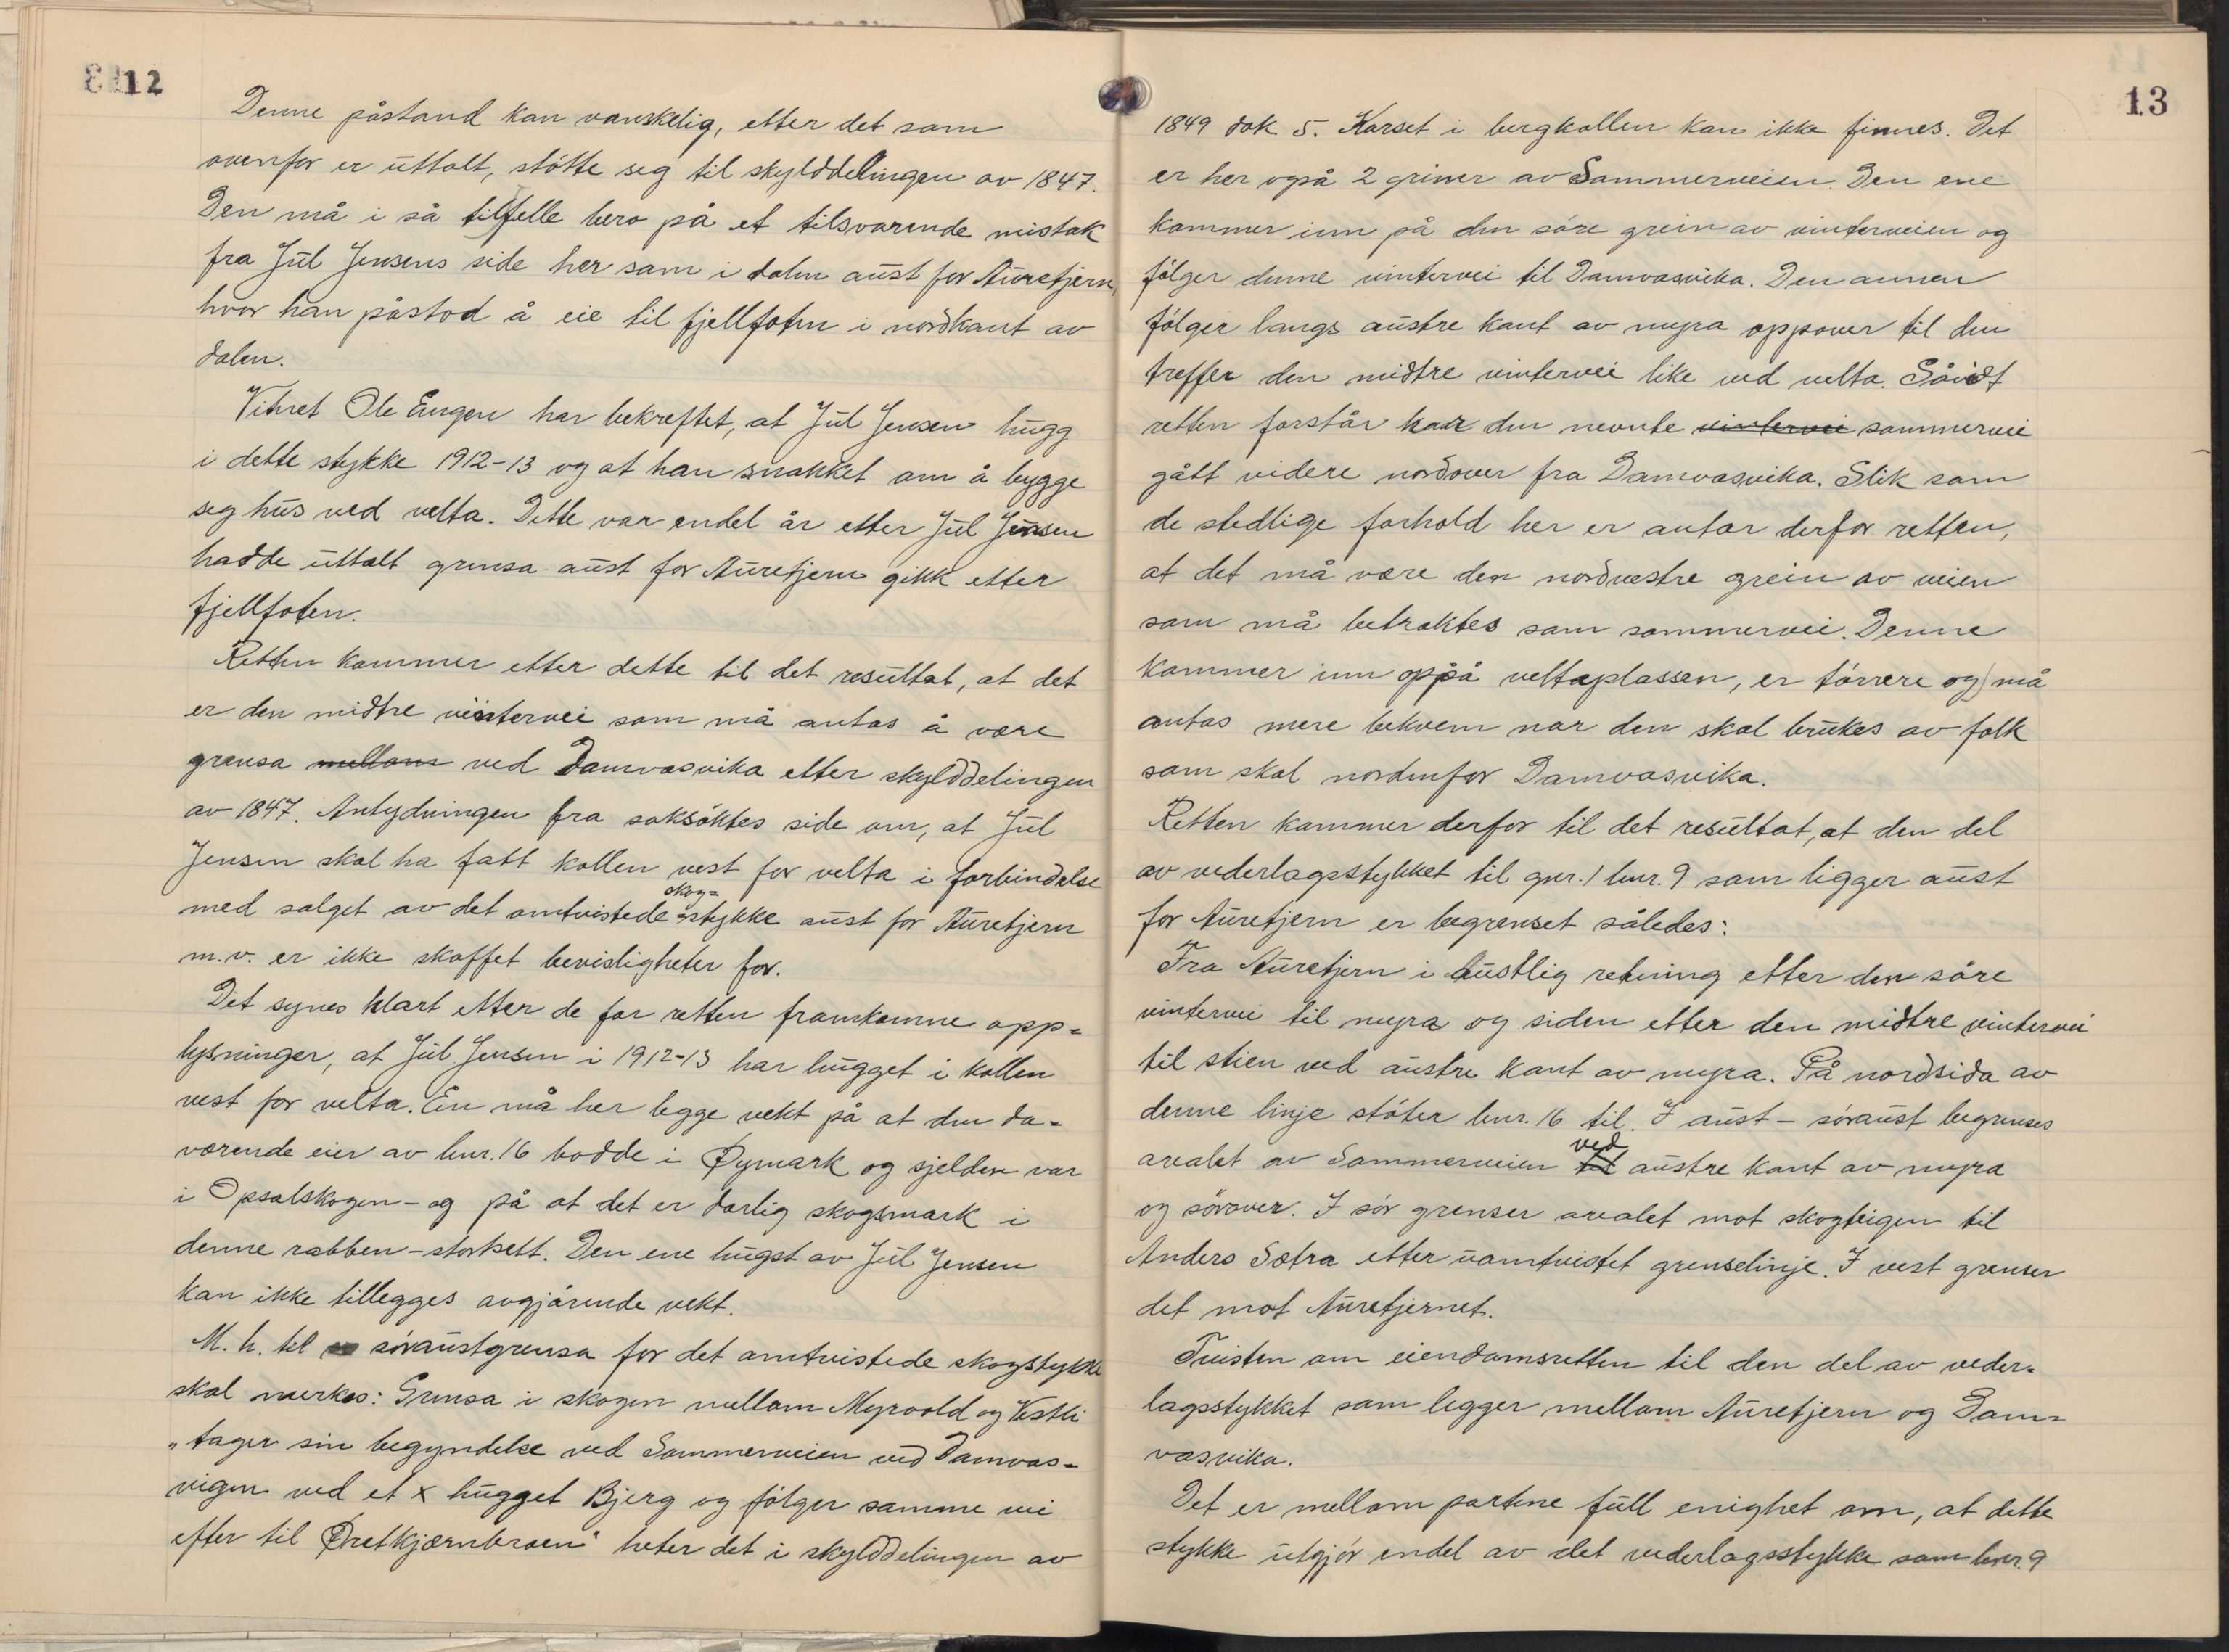 12
Denne påstand kan vanskelig, etter det som
ovenfor er uttalt, støtte seg til skylddelingen av 1847.
Den må i så tilfelle bero på et tilsvarende mistak
fra Jul Jensens side her som i dalen aust for Auretjern,
hvor han påstod å eie til fjellfoten i nordkant av
dalen.
Vitnet Ole Engen har bekreftet, at Jul Jensen hugg
i dette stykke 1912-13 og at han snakket om å bygge
seg hus ved velta. Dette var endel år etter Jul Jensen
hadde uttalt grensa aust for Auretjern gikk etter
fjellfoten.
Retten kommer etter dette til det resultat, at det
er den midtre vintervei som må antas å være
grensa mellom ved Damvasvika etter skylddelingen
av 1847. Antydningen fra saksøktes side om, at Jul
Jensen skal ha fatt kollen vest for velta i forbindelse
med salget av det omtvistede skog=stykke aust for Auretjern
m.v. er ikke skaffet bevisligheter for.
Det synes klart etter de for retten framkomne opp=
lysninger, at Jul Jensen i 1912-13 har hugget i kollen
vest for velta. En må her legge vekt på at den da=
værende eier av bnr. 16 bodde i Øymark og sjelden var
i Opsalskogen - og på at det er dårlig skogsmark i
denne rabben - stortsett. Den ene hugst av Jul Jensen
kan ikke tillegges avgjørende vekt.
M. h. til søraustgrensa for det omtvistede skogstykke
skal merkes: Grensa i skogen mellom Myrvold og Vestli
"tager sin begyndelse ved Sommerveien ved Damvas=
vigen ved et x hugget Bjerg og følger samme vei
efter til Øretkjærnbroen" heter det i skylddelingen av
13
1849 dok 5. Korset i bergkollen kan ikke finnes. Det
er her også 2 griner av Sommerveien. Den ene
kommer inn på den søre grein av vinterveien og
følger denne vintervei til Damvasvika. Den annen
følger langs austre kant av myra oppover til den
treffer den midtre vintervei like ved velta. Såvidt
retten forstår har den nevnte vintervei sommervei
gått videre nordover fra Damvasvika. Slik som
de stedlige forhold her er antar derfor retten,
at det må være den nordvestre grein av veien
som må betraktes som sommervei. Denne
kommer inn oppå veltaplassen, er tørrere og må
antas mere bekvem nar den skal brukes av folk
som skal nordenfor Damvasvika.
Retten kommer derfor til det resultat, at den del
av vederlagsstykket til gnr. 1 bnr. 9 som ligger aust
for Auretjern er begrenset således:
Fra Auretjern i austlig retning etter den søre
vintervei til myra og siden etter den midtre vintervei
til stien ved austre kant av myra. På nordsida av
denne linje støter bnr. 16 til. I aust - søraust begrenses
arealet av Sommerveien til ved austre kant av myra
og sørover. I sør grenser arealet mot skogteigen til
Anders Sætra etter uomtvistet grenselinje. I vest grenser
det mot Auretjernet.
Tvisten om eiendomsretten til den del av veder=
lagsstykket som legger mellom Auretjern og Dam=
vasvika.
Det er mellom partene full enighet om, at dette
stykke utgjør endel av det vederlagsstykke som bnr. 9